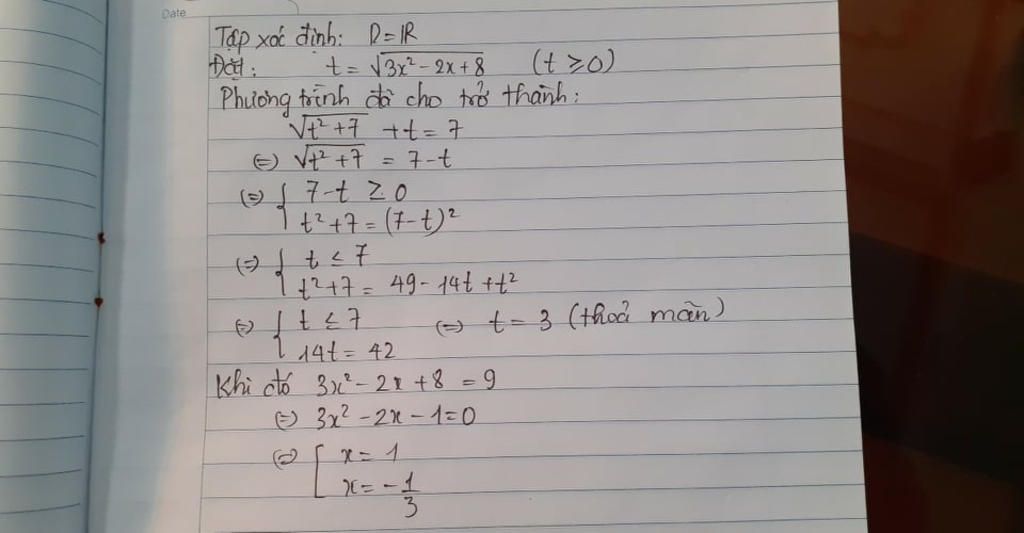 Date
Tập xác định: D = ℝ
Đặt: t = √(3x² - 2x + 8) (t ≥ 0)
Phương trình đã cho trở thành:
√(t² + 7) + t = 7
⇔ √(t² + 7) = 7 - t
⇔ { 7 - t ≥ 0
t² + 7 = (7 - t)²
⇔ { t ≤ 7
t² + 7 = 49 - 14t + t²
⇔ { t ≤ 7 ⇔ t = 3 (thoả mãn)
14t = 42
Khi đó 3x² - 2x + 8 = 9
⇔ 3x² - 2x - 1 = 0
⇔ [ x = 1
x = -1/3